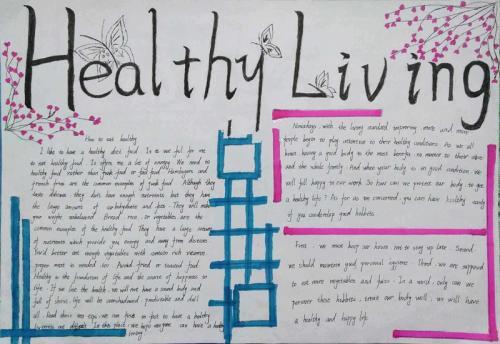 Healthy Living
How to eat healthy
I like to have a healthy diet food. It is us ful for me
to eat healthy food. It offers me a lot of energy. We need to
healthy food rather than junk food or fast food. Hamburgers and
french fries are the common examples of junk food. Although they
taste delicious they don't have enough nutritions but they have
the large amounts of carbohydrate and fats. They will make
your weight unbalanced. Bread, rice, or vegetables are the
common examples of the healthy food. They have a large amount
of nutrients which provide you energy and away from diseases.
You'd better eat enough vegetables with contain rich vitamins.
protein meat is needed too. Avoid fried or roasted food.
Healthy is the foundation of life and the source of happiness in
life. If we lose the health, we will not have a sound body and
full of stress, life will be overshadowed, predictable and dull
all. Read above we can live in fact to have a healthy
In this place, we hope everyone can have a healthy
living!
Nowadays, with the living standard improving more and more
people begin to pay attention to their healthy conditions. As we all
know, having a good body is the most benefits no matter to their own
and the whole family. And when your body is on good condition, we
will feel happy to our work. So how can we protect our body, to get
a healthy life? As far as we concerned, you can have healthy early
if you develop good habbits.
First, we must keep our hours, not to stay up late. Second,
we should maintain good personal hygiene. Third, we are supposed
to eat more vegetables and fruits. In a word, only can we
persevere these habbits, treat our body well, we will have
a healthy and happy life.